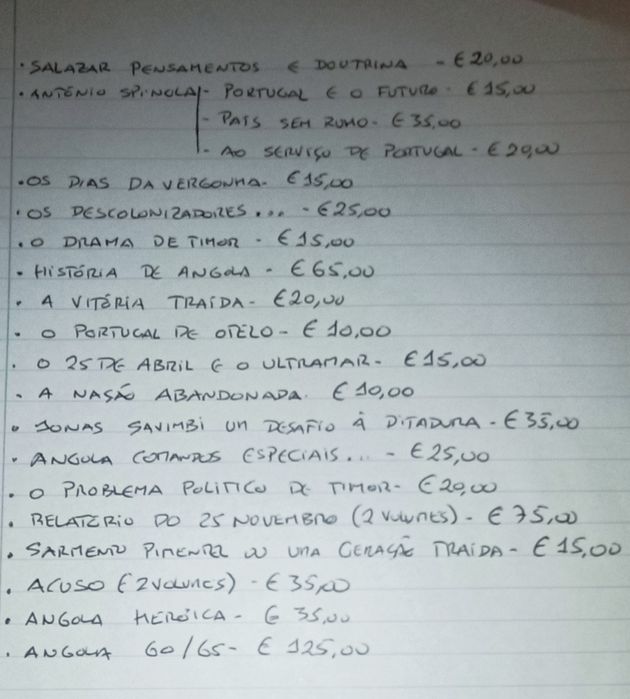 • SALAZAR PENSAMENTOS E DOUTRINA - € 20,00
• ANTÓNIO SPINOLA - PORTUGAL E O FUTURO - € 15,00
- PAIS SEM RUMO - € 35,00
- AO SERVIÇO DE PORTUGAL - € 20,00
• OS DIAS DA VERGONHA - € 15,00
• OS DESCOLONIZADORES... - € 25,00
• O DRAMA DE TIMOR - € 15,00
• HISTÓRIA DE ANGOLA - € 65,00
• A VITÓRIA TRAÍDA - € 20,00
• O PORTUGAL DE OTELO - € 10,00
• O 25 DE ABRIL E O ULTRAMAR - € 15,00
• A NASÃO ABANDONADA. € 10,00
• JONAS SAVIMBI UM DESAFIO À DITADURA - € 35,00
• ANGOLA COMANDOS ESPECIAIS... - € 25,00
• O PROBLEMA POLITICO DE TIMOR - € 20,00
• RELATÓRIO DO 25 NOVEMBRO (2 VOLUMES) - € 75,00
• SARMENTO PIMENTEL OU UMA GERAÇÃO TRAÍDA - € 15,00
• ACUSO (2 VOLUMES) - € 35,00
• ANGOLA HERÓICA - € 35,00
• ANGOLA 60/65 - € 125,00